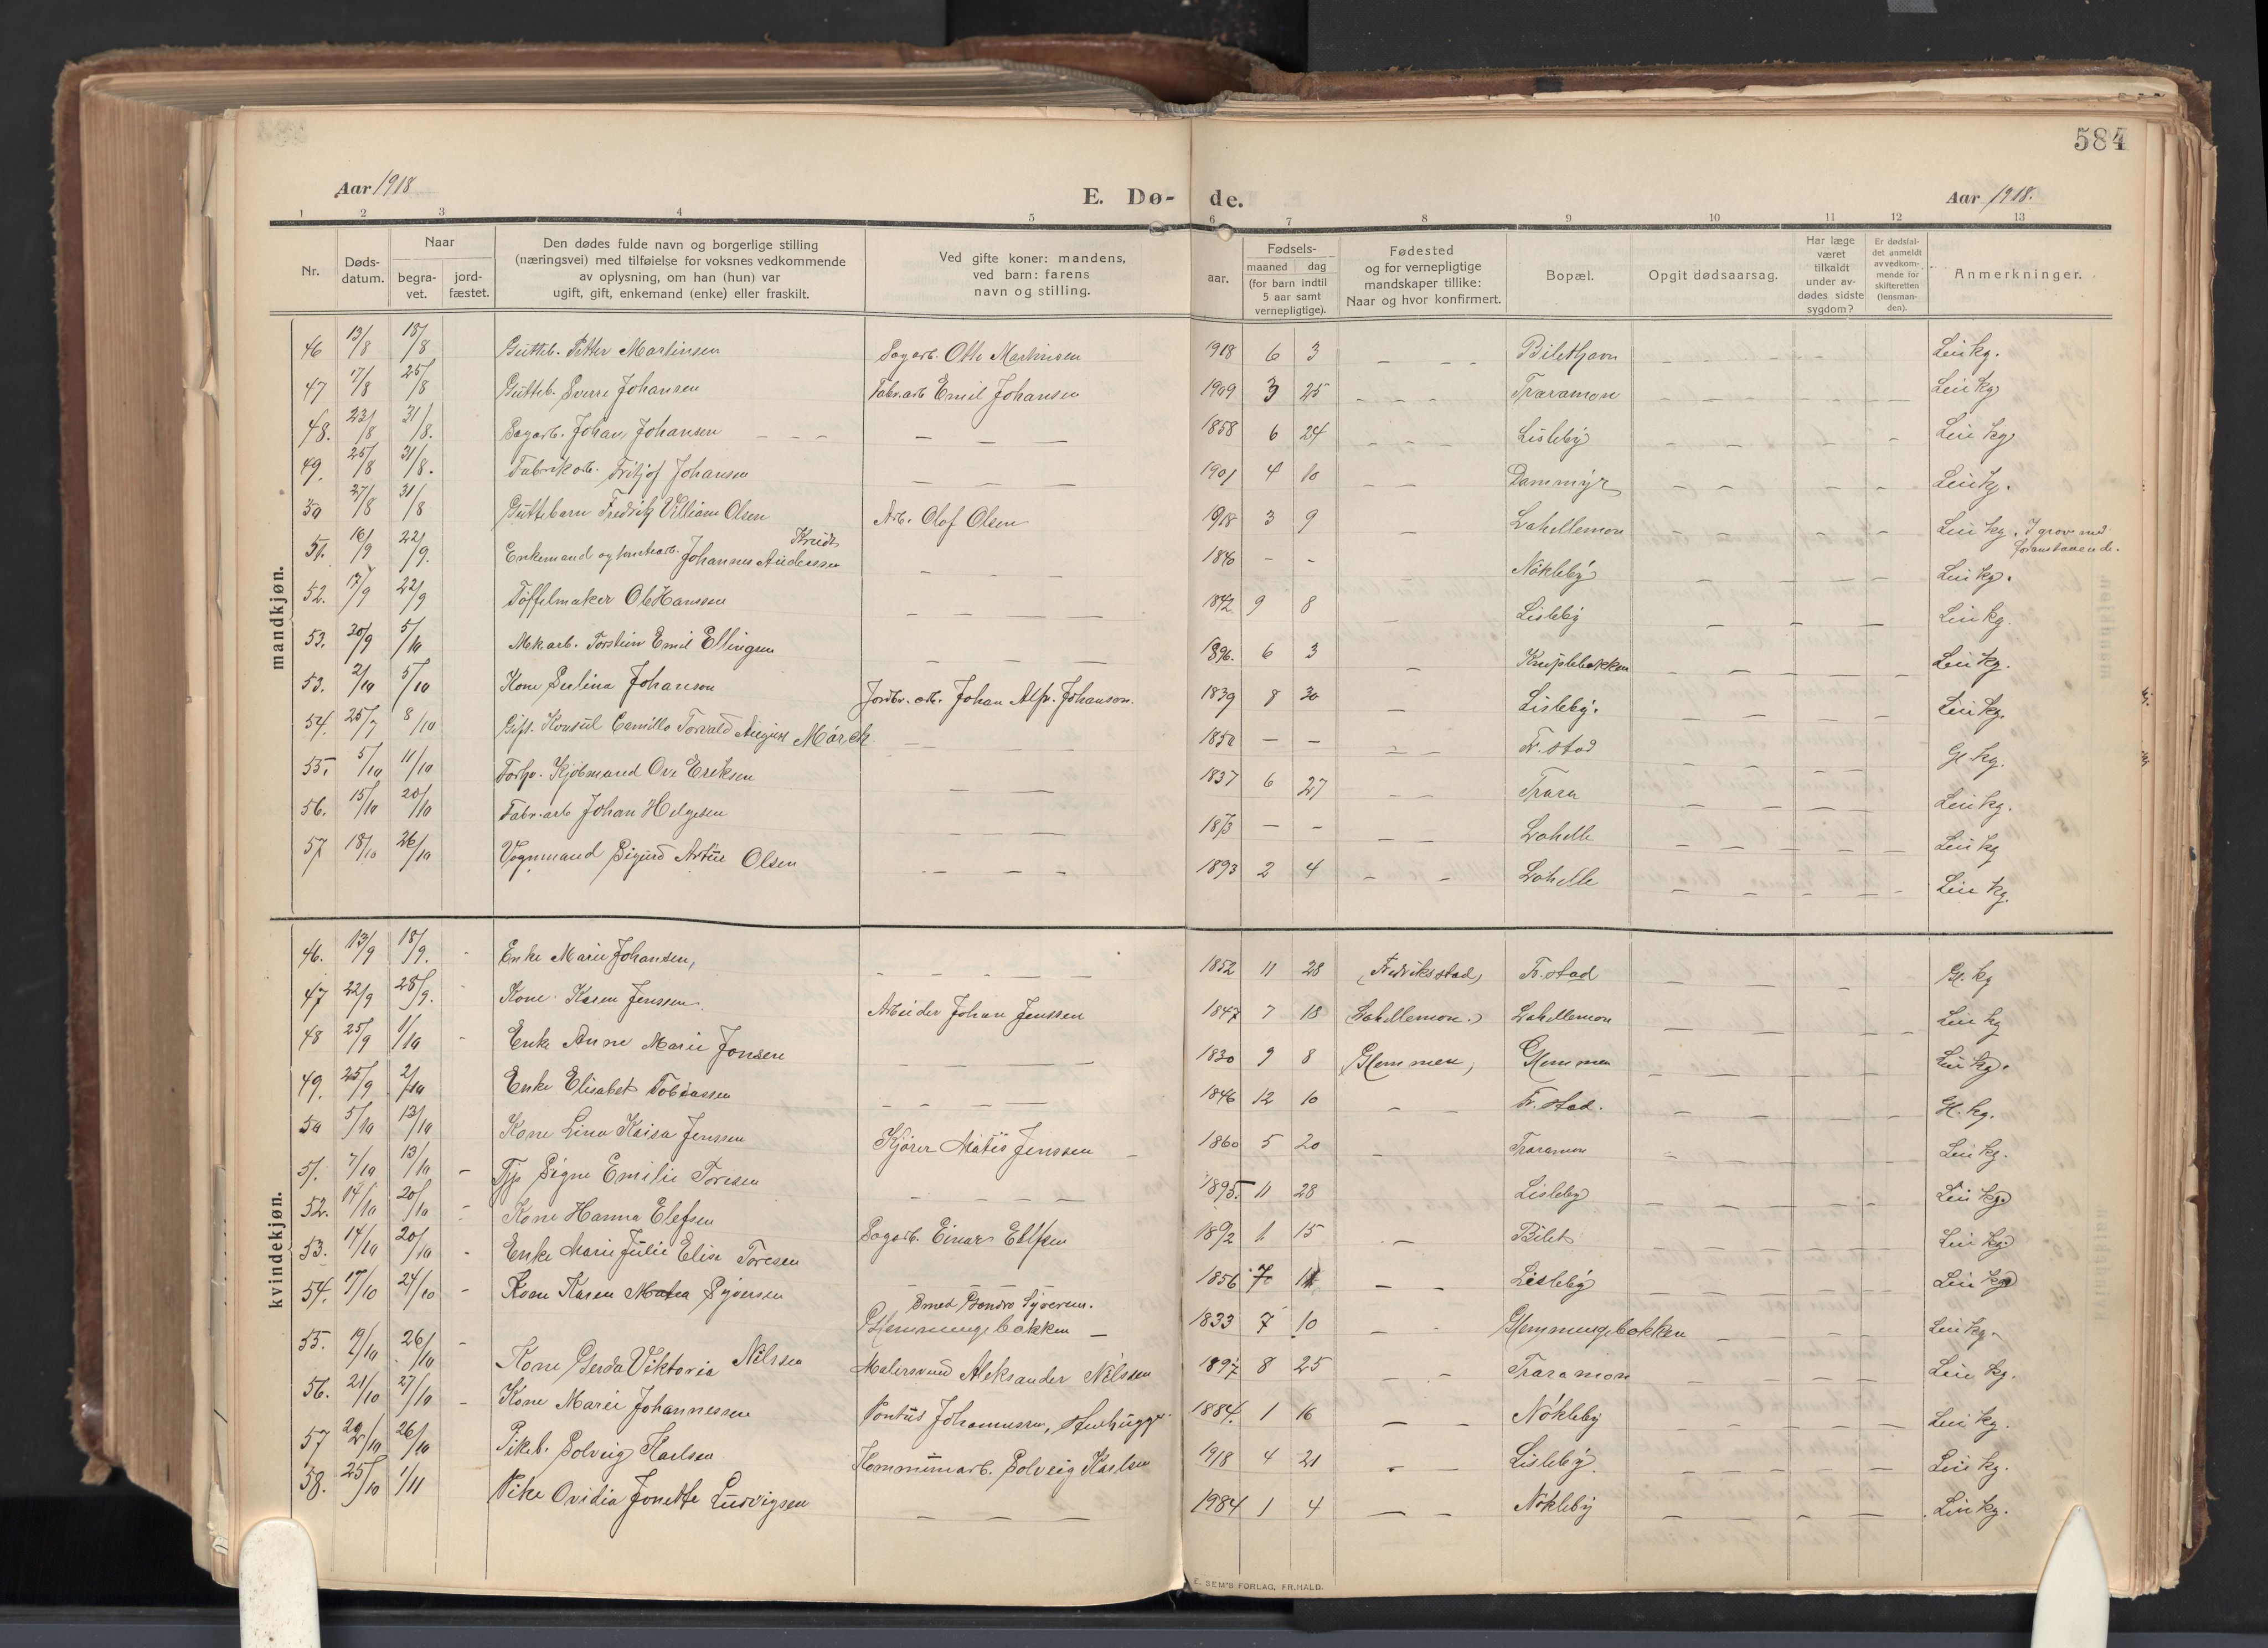 584
Aar 1918
E. Dø- de.
Aar 1918.
1 2 3 4 5 6 7 8 9 10 11 12 13
Nr.
Døds-
datum.
Naar
begra-
vet.
jord-
fæstet.
Den dødes fulde navn og borgerlige stilling
(næringsvei) med tilføielse for voksnes vedkommende
av oplysning, om han (hun) var
ugift, gift, enkemand (enke) eller fraskilt.
Ved gifte koner: mandens,
ved barn: farens
navn og stilling.
aar.
Fødsels-
maaned dag
(for barn indtil
5 aar samt
vernepligtige).
Fødested
og for vernepligtige
mandskaper tillike:
Naar og hvor konfirmert.
Bopæl.
Opgit dødsaarsag.
Har læge
været
tilkaldt
under av-
dødes sidste
sygdom?
Er dødsfal-
det anmeldt
av vedkom-
mende for
skifteretten
(lensman-
den).
Anmerkninger.
mandkjøn.
46 13/8 18/8 Gutteb. Petter Martinsen Sagarb. Otto Martinsen 1918 6 3 — — — Bilethavn — — — — Lei kg.
47 17/8 25/8 Gutteb. Sverre Johansen Fabr.arb Emil Johansen 1909 3 25 — — — Traramon — — — — Lei kg
48. 23/8 31/8. Sagarb. Johan Johansen — — — — — — 1858 6 24 — — — Lisleby — — — — Lei kg
49. 25/8 31/8. Fabrikarb. Fritjof Johansen — — — 1901 4 10 — — — Dammyr — — — — Lei kg.
50 27/8 31/8 Guttebarn Fredrik Villiam Olsen Arb. Olof Olsen 1918 3 9 — — Lahellemon — — — — Lei kg. I grav med
foranstaaende.
51. 16/9 22/9. Enkemand og Johannes Anderssen — — — 1840 — — — Nökleby — — — — Lei kg.
52. 17/9 22/9 Töffelmaker Ole Hanssen — — — 1842 9 8 — Lisleby — — — — Lei kg.
53. 30/9 5/10 Mek.arb. Torstein Emil Ellingsen — — — 1896. 6 3 — — — — — Lei kg.
53. 2/10 5/10 Kone Perlina Johanson Jordbr. arb. Johan Alfr. Johanson. 1839 8 30 — Lisleby. — — — — Lei kg.
54. 25/7 8/10 Gift. Konsul Camillo Torvald August Mörch — — — 1850 — — — — Fr.stad — — — — Gl. kg.
55. 5/10 11/10 Forhv. Kjöbmand Ove Eriksen — — — 1837 6 27 — — Trara — — — — Lei kg.
56. 15/10 20/10 Fabr.arb Johan Helgesen — — — 1873 — — — — Lahelle — — — — Lei kg
57 18/10 26/10 Vognmand Sigurd Artur Olsen — — — 1893 2 4 — — Lahelle — — — — Lei kg.
kvindekjøn.
46. 13/9 18/9. - Enke Marie Johansen, — — — — 1852 11 28 (Fredriksstad) Fr.stad — — — Gl. kg
47 22/9 28/9. - Kone Karen Jenssen Arbeider Johan Jenssen 1847 7 18 (Lahellemon.) Lahellemon — — — — Lei kg
48 25/9 1/10 - Enke Anne Marie Jonsen — — — — 1830 9 8 Glemmen, Glemmen — — — — Lei kg.
49. 25/9 2/10 Enke Elisabet Tobiassen — — — — 1846 12 10 — — Fr. stad. — — — — Gl. kg.
50 5/10 13/10 Kone Lina Kaisa Jenssen Kjörer Matis Jenssen — 1860 5 20 — Traramon — — — — Lei kg.
51. 7/10 13/10 — Tjp Signe Emilie Toresen — — — — 1895. 11 28 Lisleby — — — — Lei kg
52. 14/10 20/10 - Kone Hanna Elefsen Sagarb. Einar Ellfsen 1892 1 15 — — Bilet — — — — Lei kg
53. 14/10 20/10 - Enke Marie Julie Elise Toresen — — — — 1856 7 — — Lisleby — — — — Lei kg
54. 17/10 24/10 - Kone Karen Matea Syversen Smed Syversen.
Glemmingebakken — 1833 7 10 — — Glemmingebakken — — — — Lei kg.
55. 19/10 26/10 - Kone Gerda Viktoria Nilssen Malersvend Aleksander Nilssen 1897 8 25 — — Traramon — — — — Lei kg.
56. 21/10 27/10 - Kone Marie Johannessen Pontus Johannessen, stenhugger 1884. 1 16 — — Nökleby — — — — Lei kg.
57 22/10 26/10 Pikeb. Solveig Karlsen Kommunarb. Solveig Karlsen 1918 4 21 — — Lisleby. — — — — Lei kg.
58. 25/10 1/11 Pike Ovidia Jonette Ludvigsen — — — 1984 1 4 — — Nökleby — — — — Lei kg.
E. SEM'S FORLAG, FR.HALD.